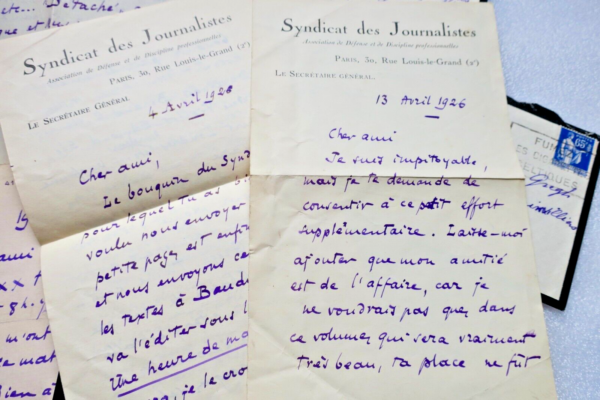 Détaché
Syndicat des Journalistes
Association de Défense et de Discipline professionnelles
PARIS, 30, Rue Louis-le-Grand (2e)
LE SECRÉTAIRE GÉNÉRAL.
4 Avril 1926
Cher ami,
Le bouquin du Synd
pour lequel tu as
voulu nous envoyer
petite page, est enfin
et nous envoyons ce
les textes à Baud
va l'éditer sous l
Une heure de ma
je le cro
Syndicat des Journalistes
Association de Défense et de Discipline professionnelles
PARIS, 30, Rue Louis-le-Grand (2e)
LE SECRÉTAIRE GÉNÉRAL.
13 Avril 1926
Cher ami
Je suis impitoyable,
mais je te demande de
consentir à ce petit effort
supplémentaire. Laisse-moi
ajouter que mon amitié
est de l'affaire, car je
ne voudrais pas que, dans
ce volume, qui sera vraiment
très beau, ta place ne fût
19
ami
XX
m'ont
ce mat
Bien à
65